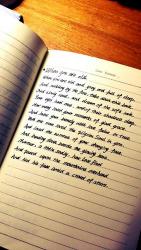 When you are old
When you are old and grey and full of sleep,
And nodding by the fire, take down this book,
And slowly read, and dream of the soft look
Your eyes had once, and of their shadows deep;
How many loved your moments of glad grace,
And loved your beauty with love false or true,
But one man loved the pilgrim soul in you,
And loved the sorrows of your changing face;
And bending down beside the glowing bars,
Murmur, a little sadly, how love fled
And paced upon the mountains overhead
And hid his face amid a crowd of stars.